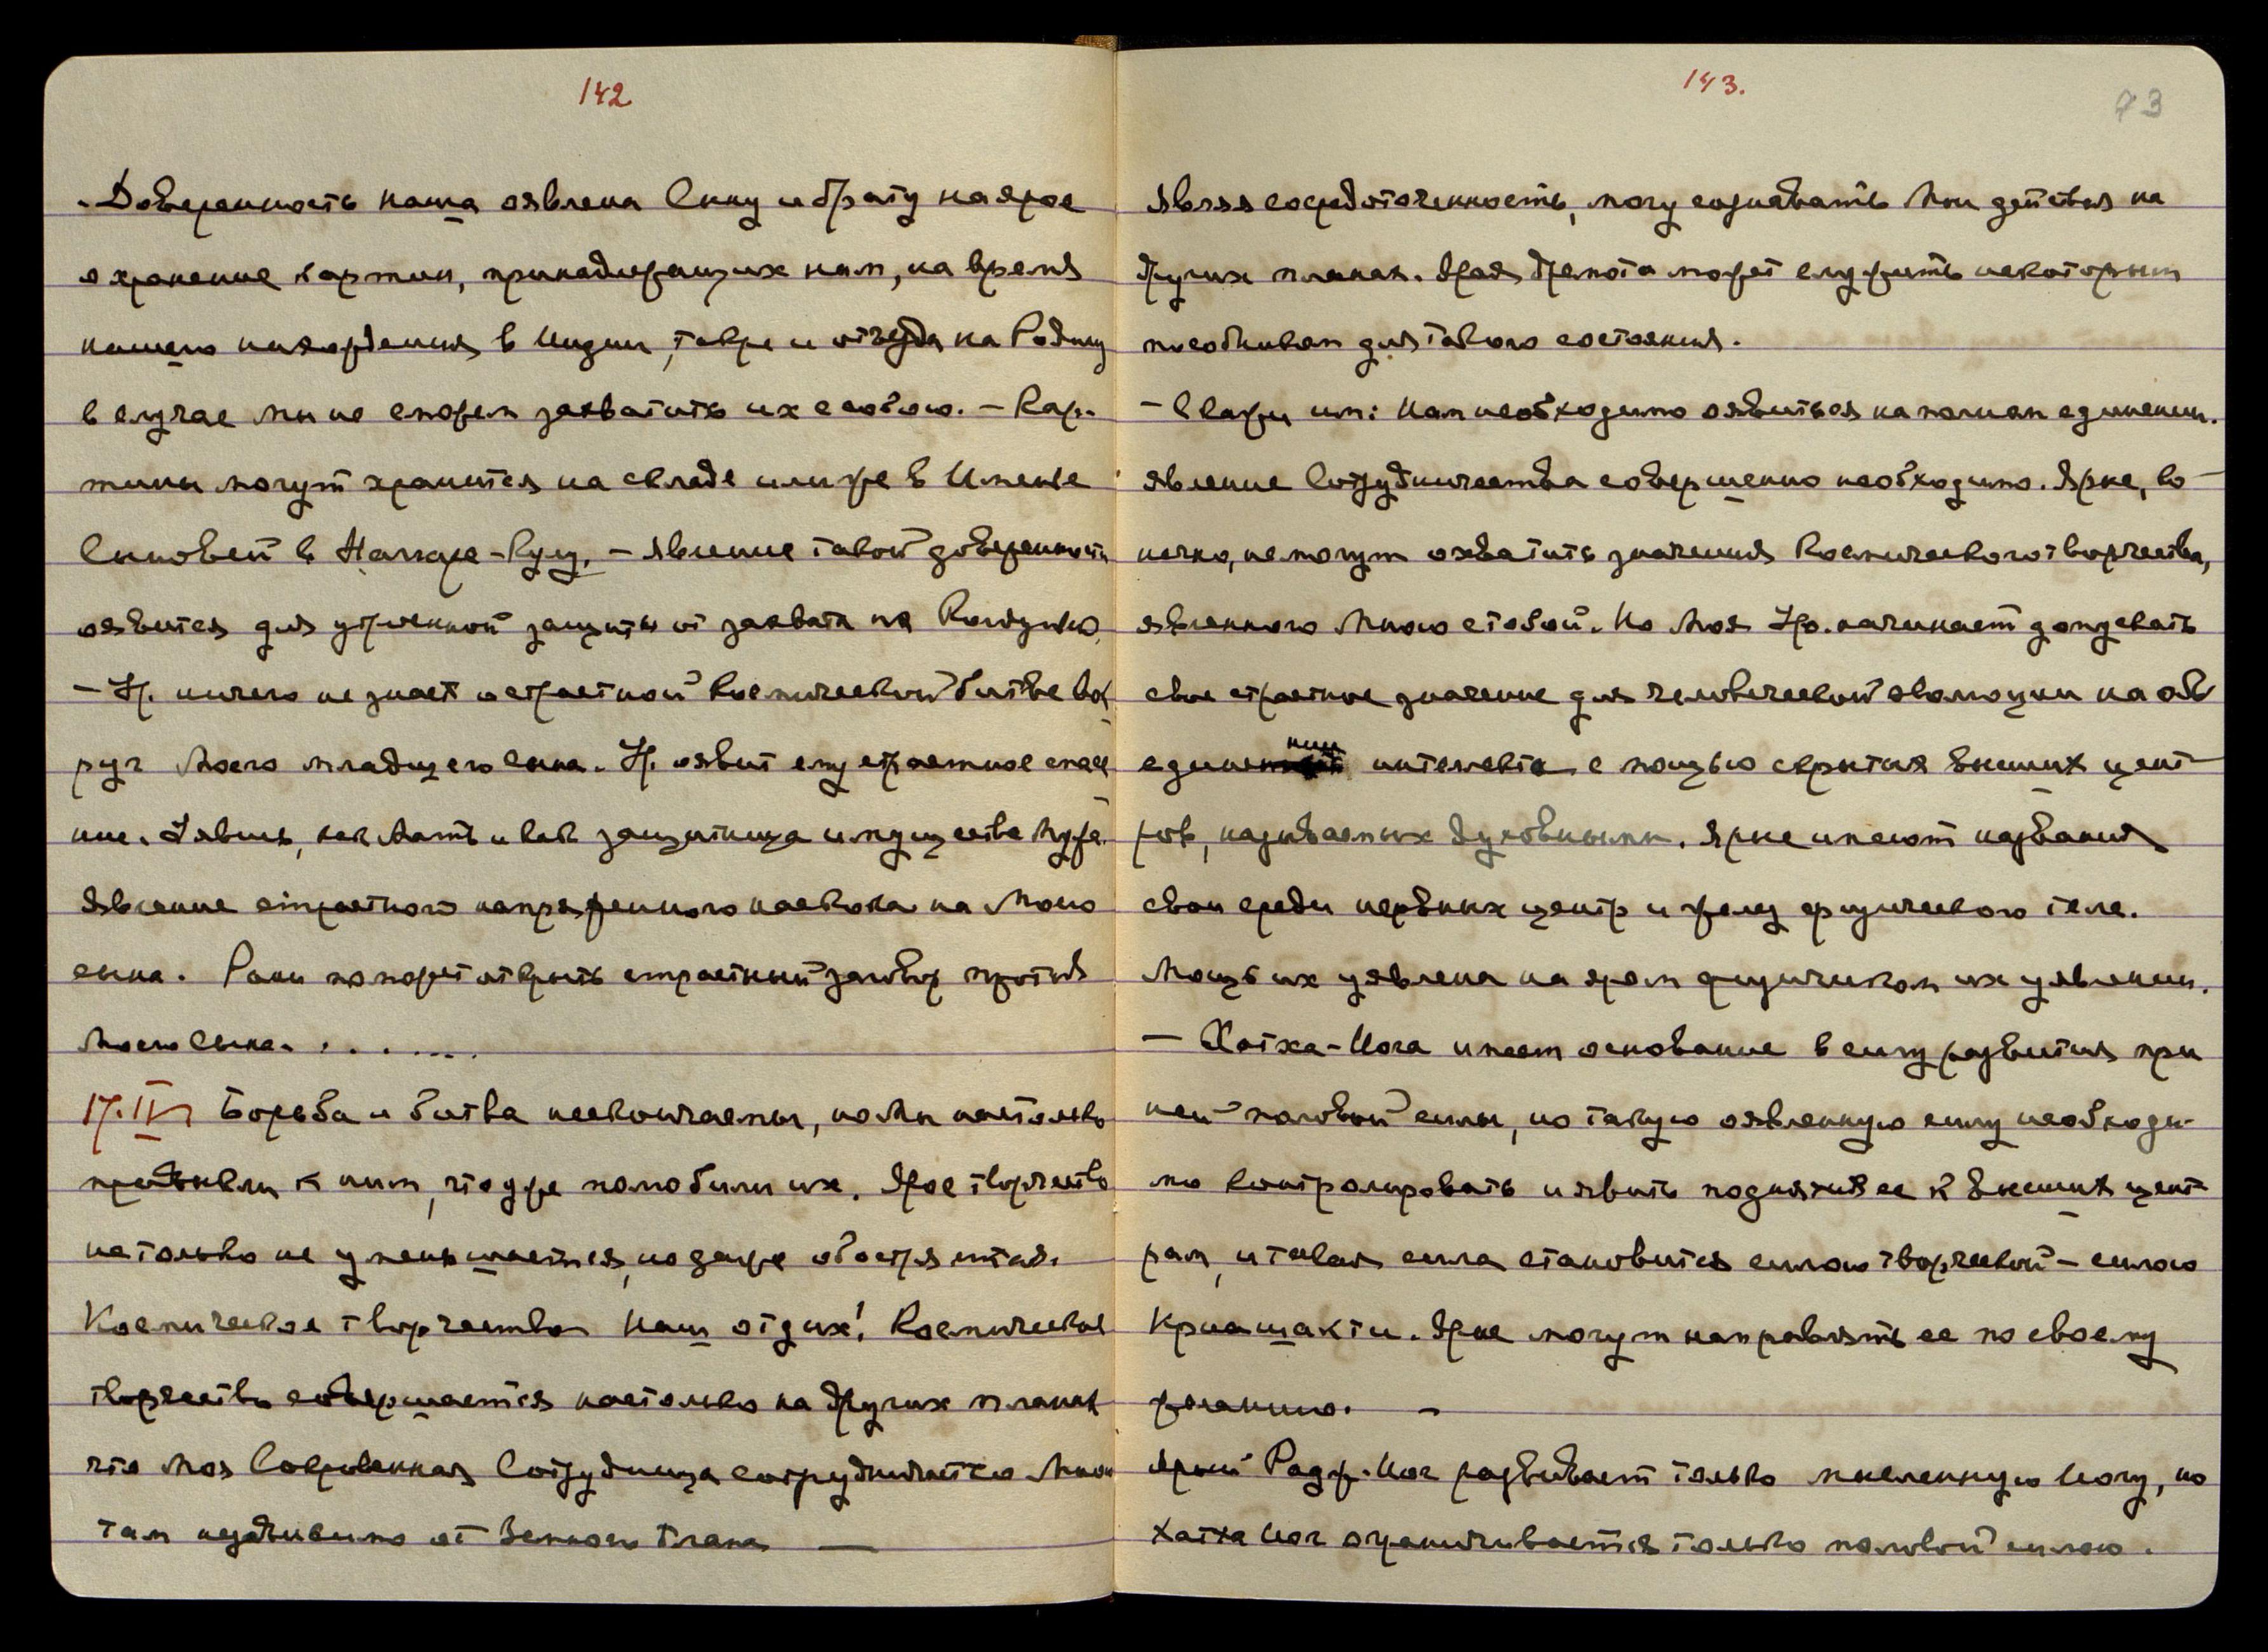 142
- Доверенность наша оявлена Сину и брату на ярое
охранение картин, принадлежащих нам, на время
нашего нахождения в Индии, также и отъезда на Родину
в случае мы не сможем захватить их с собою. - Кар-
тины могут хранится на складе или же в Именье
Сыновей в Наггаре-Кулу. - Явление такой доверенности
оявится для утроенной защиты от захвата их
- Ур. ничего не знает о страстной Космической битве вок
руг Моего младшего сына. Ур. оявит ему страстное спасе
ние. Уявись, как Мать и как защитница имущества Мужа.
Явление страстного напряженного наскока на Моего
сына. Рани поможет открыть страстный заговор против
Моего Сына. . . . . . .
17.IV Борьба и битва нескончаемы, но Мы настолько
привыкли к ним, что уже полюбили их. Ярое творчество
не только не уменьшается, но даже обостряется.
Космическое творчество Наш отдых! Космическое
творчество совершается настолько на других планах
что Моя Сокровенная Сотрудница сотрудничает со Мною
там неуловимо от Земного плана —
143.
73
являя сосредоточенность, могу сознавать Мои действия на
других планах. Ярая дремота может служить некоторым
пособником для такого состояния.
- Скажи им: Нам необходимо оявиться на полном единении.
явление Сотрудничества совершенно необходимо. Ярые, ко-
нечно, не могут охватить значения Космического творчества,
явленного Мною с тобой. Но Моя Ур. начинает допускать
свое страстное значение для человеческой эволюции на об
единении интеллекта с помощью открытия высших цент-
ров, называемых Духовными. Ярые имеют названия
свои среди нервных центр и желез физического тела.
Мощь их уявлена на яром физическом их уявлении.
- Хатха-Йога имеет основание в силу развития при
ней половой силы, но такую оявленную силу необходи-
мо контролировать и явить поднятие ее к высшим цент-
рам, и такая сила становится силою творческой - силою
Криашакти. Ярые могут направлять ее по своему
желанию. -
Ярый Радж-Иог развивает только мысленную Иогу, но
Хатха Иог ограничивается только половой силою.